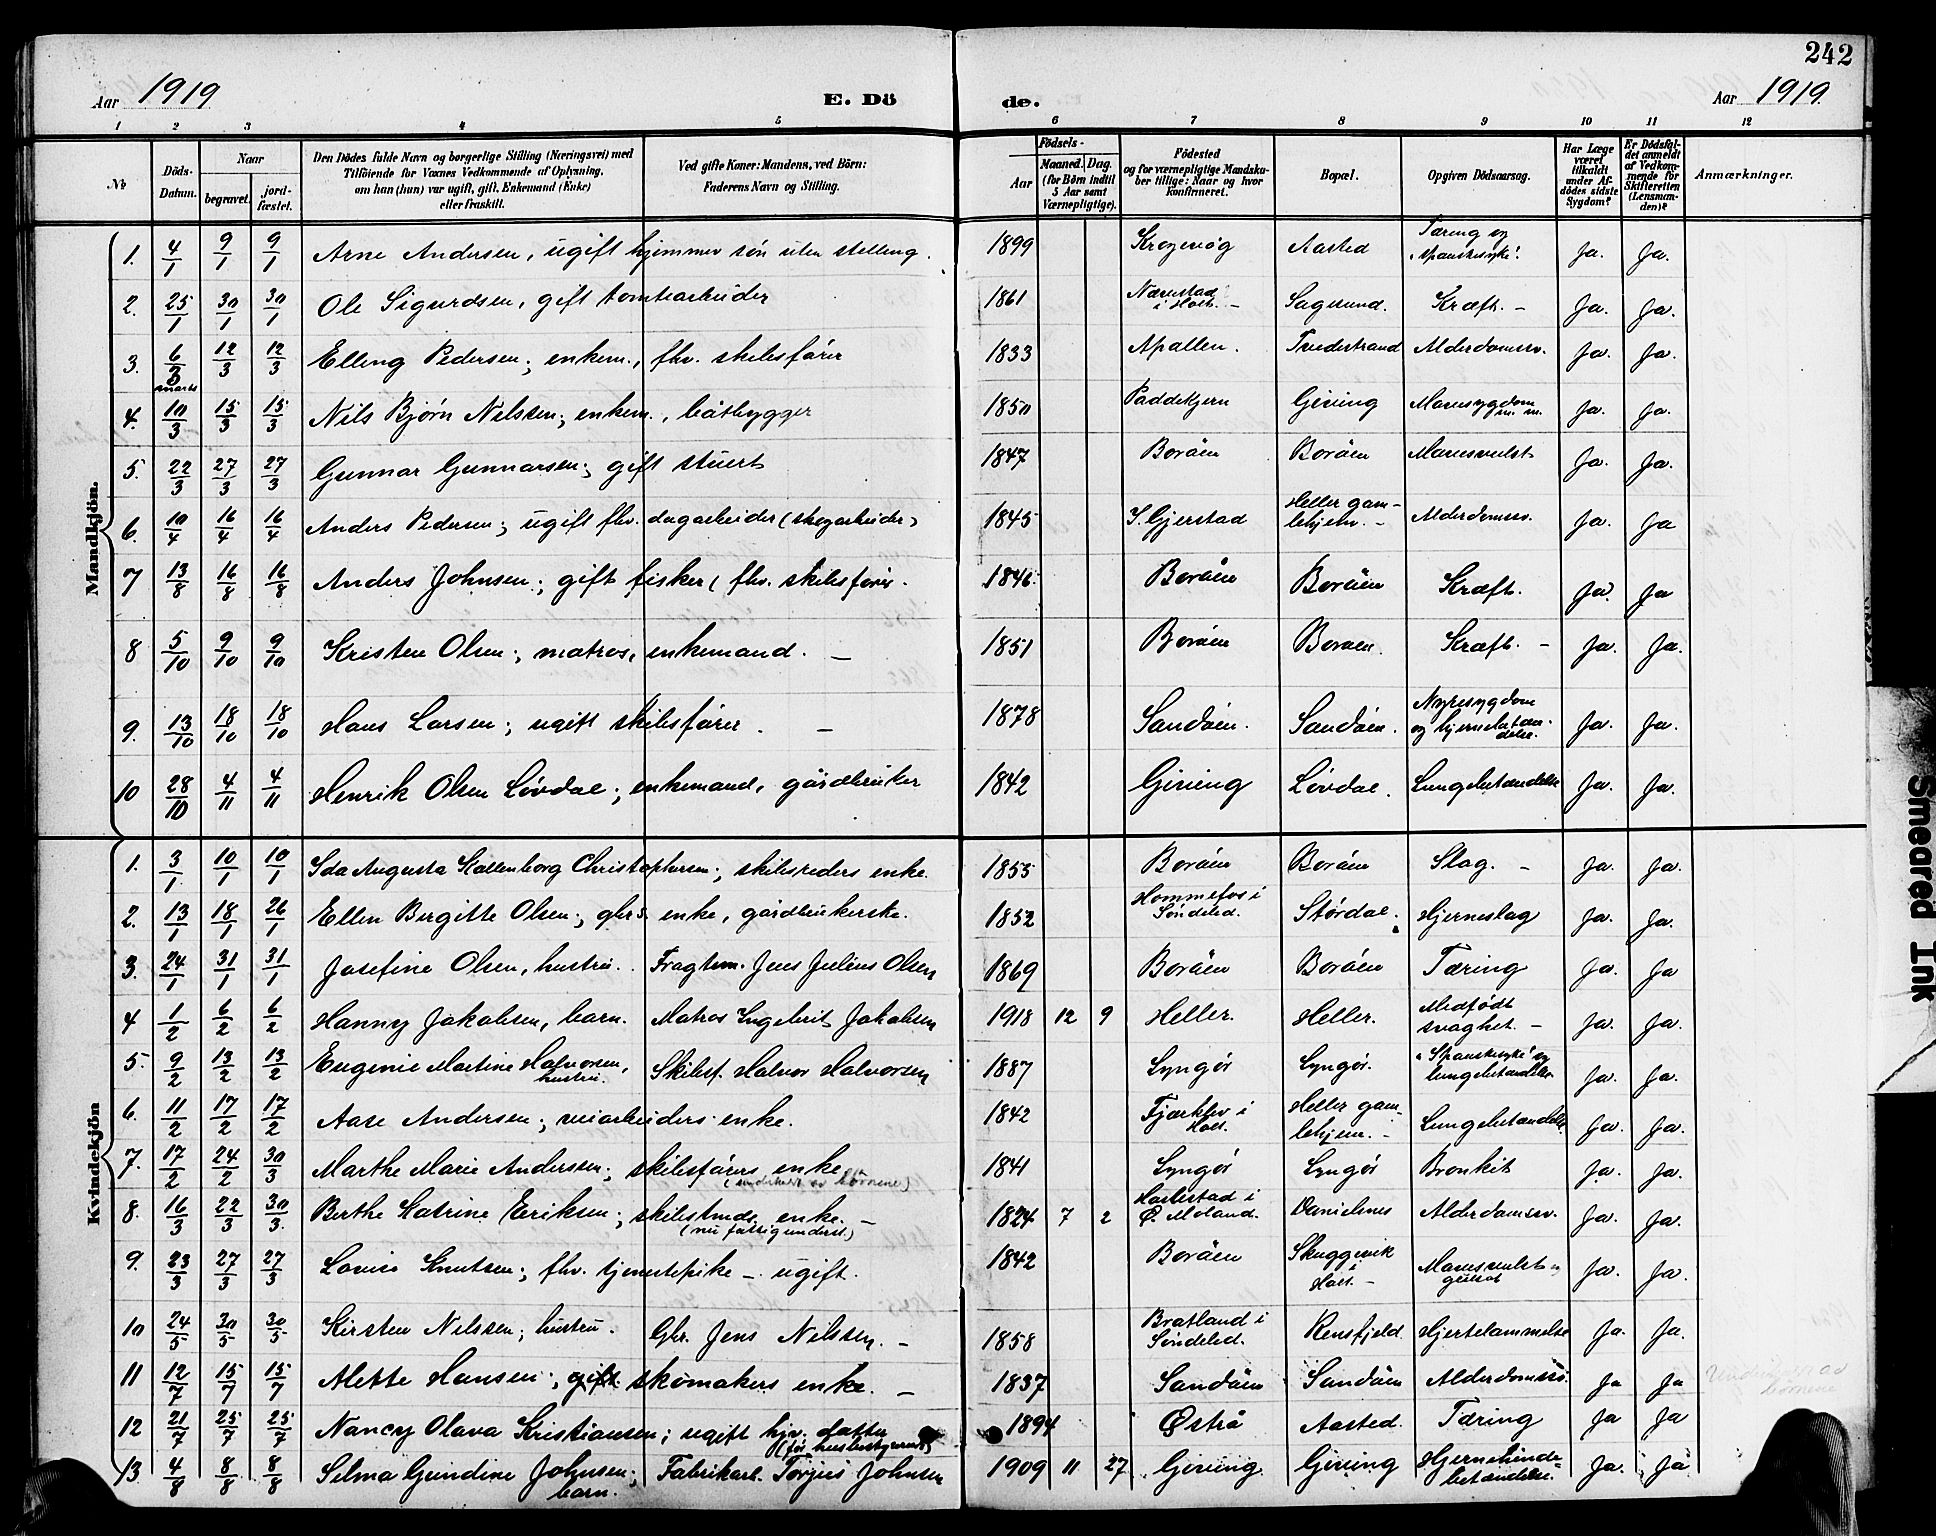 242
Aar 1919
E. Dö de.
Aar 1919.
1 2 3 4 5 6 7 8 9 10 11 12
No
Döds-Datum.
Naar
begravet. jord-fæstet.
Den Dödes fulde Navn og borgerlige Stilling (Næringsvei) med
Tilföiende for Voxnes Vedkommende af Oplysning,
om han (hun) var ugift, gift, Enkemand (Enke)
eller fraskilt.
Ved gifte Koner: Mandens, ved Börn:
Faderens Navn og Stilling.
Födsels-
Aar
Maaned. Dag.
(for Börn indtil
5 Aar samt
Værnepligtige).
Födested
og for værnepligtige Mandska-
ber tillige: Naar og hvor
konfirmeret.
Bopæl.
Opgiven Dödsaarsag.
Har Læge
været
tilkaldt
under Af-
dödes sidste
Sygdom?
Er Dödsfal-
det anmeldt
af Vedkom-
mende for
Skifteretten
(Lensman-
den)?
Anmærkninger.
Mandkjön.
1. 4/1 9/1 9/1 Arne Andersen, ugift hjemmev. søn uten stilling. 1899 Krogevåg Aasted Tæring og "spanskesyke". Ja. Ja.
2. 25/1 30/1 30/1 Ole Sigurdsen, gift tomtearbeider 1861 Nærestad i Holt. – Sagesund. Kræft. – Ja. Ja.
3. 6/3 marts 12/3 12/3 Elling Pedersen; enkem., fhv. skibsfører 1833 Apallen. Tvedestrand Alderdomssv. Ja. Ja.
4. 10/3 15/3 15/3 Nils Bjørn Nilssen; enkem., båtbygger 1850 Paddekjern Giving Mavesygdom m. m. Ja. Ja.
5. 22/3 27/3 27/3 Gunnar Gunnarsen; gift stuert 1847 Borøen Borøen Mavesvulst Ja. Ja.
6. 10/4 16/4 16/4 Anders Pedersen; ugift fhv. dagarbeider (skogarbeider) 1845 S. Gjerstad Heller gam-lehjem. – Alderdomssv. Ja. Ja
7 13/8 16/8 16/8 Anders Johnsen; gift fisker (fhv. skibsfører. 1846 Borøen Borøen Kræft. Ja. Ja
8 5/10 9/10 9/10 Kristen Olsen; matros, enkemand. – 1851 Borøen Borøen. Kræft. – Ja. Ja.
9. 13/10 18/10 18/10 Hans Larsen; ugift skibsfører. – 1878 Sandøen. Sandøen. Nyresygdom og hjernebetæn-delse. Ja. Ja.
10 28/10 4/11 4/11 Henrik Olsen Løvdal; enkemand, gårdbruker 1842 Giving Løvdal. Lungebetændelse Ja. Ja.
Kvindekjön
1. 3/1 10/1 10/1 Ida Augusta Kallenborg Christophersen; skibsreders enke. 1855 Borøen Borøen Slag. – Ja. Ja.
2. 13/1 18/1 26/1 Ellen Birgitte Olsen; gbrs. enke, gårdbrukerske. 1852 Hommefos i Søndeled. Størdal. Hjerneslag Ja. Ja.
3. 24/1 31/1 31/1 Josefine Olsen, hustru. Fragtem. Jens Julius Olsen 1869 Borøen Borøen Tæring Ja. Ja
4 1/2 6/2 6/2 Hanny Jakobsen, barn. Matros Ingebrit Jakobsen 1918 12 9 Heller. Heller. Medfødt svaghet. – Ja. Ja.
5. 9/2 13/2 13/2 Eugenie Martine Halvorsen, hustru. Skibsf. Halvor Halvorsen 1887 Lyngør Lyngør. "Spanskesyke" og lungebetændelse. Ja. Ja.
6. 11/2 17/2 17/2 Aase Andersen; veiarbeiders enke. 1842 Fjærkløv i Holt. Heller gam-lehjem. – Lungebetændelse Ja. Ja.
7. 17/2 24/2 30/3 Marthe Marie Anderssen; skibsførers enke (underholdt av børnene) 1841 Lyngør Lyngør Bronkit Ja. Ja.
8. 16/3 22/3 30/3. Berthe Katrine Eriksen; skibstmds. enke. – (nu fattigunderst.) 1824 7 2 Harbestad i Ø. Moland. Danielnes Alderdomssv. Ja. Ja.
9. 23/3 27/3 27/3 Lovise Knutsen; fhv. tjenestepike – ugift. 1842 Borøen Skuggevik i Holt – Mavesvulst og gulsot Ja. Ja.
10 24/5 30/5 30/5 Kirsten Nilssen; hustru. Gbr. Jens Nilssen. – 1858 Bratland i Søndeled. Rensfjeld. Hjertelammelse Ja. Ja.
11 12/7 15/7 15/7 Alette Hansen; gift skomakers enke. – 1837 Sandøen Sandøen Alderdomssv. Ja Ja
12 21/7 25/7 25/7 Nancy Olava Kristiansen; ugift hjv. datter (før husbestyrerinde) 1894 Østrå Aasted. Tæring Ja Ja
13 4/8 8/8 8/8 Selma Gundine Johnsen; barn. Fabrikarb. Torjus Johnsen 1909 11 27 Giving Giving Hjernehinde-betændelse. Ja. Ja
Smeared Ink